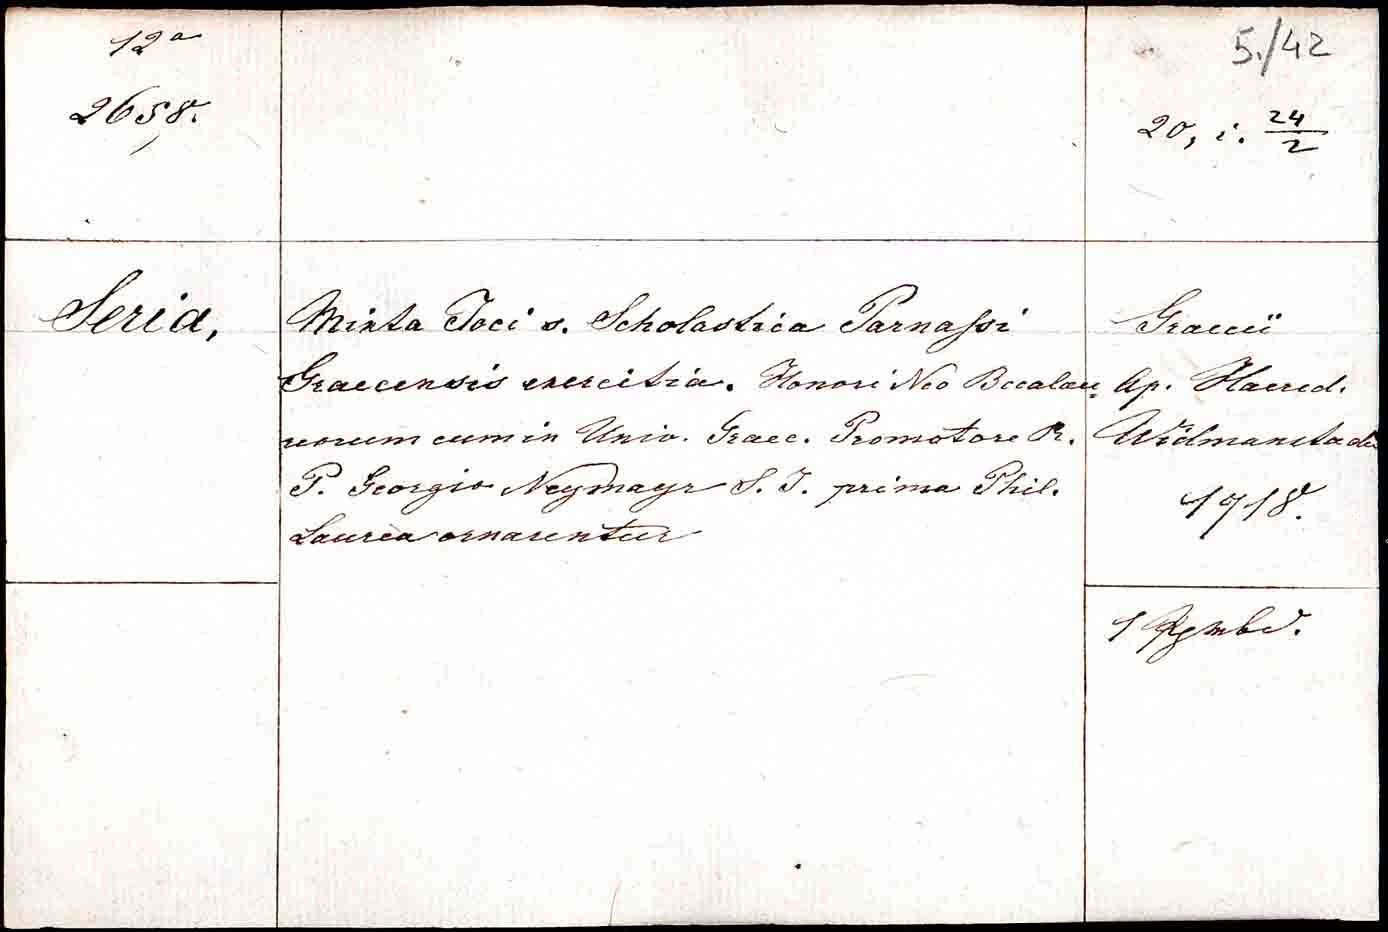 12°
2658.
5./42
20, i. 24/2
Seria,
Mixta Joci s. Scholastica Parnassi
Graecensis exercitia. Honori Neo Bccalau=
reorum cum in Univ. Graec. Promotore R.
P. Georgio Neymayr S. J. prima Phil.
Laurea ornarentur
Graecii
Ap. Haered.
Widmanstadii
1718.
1